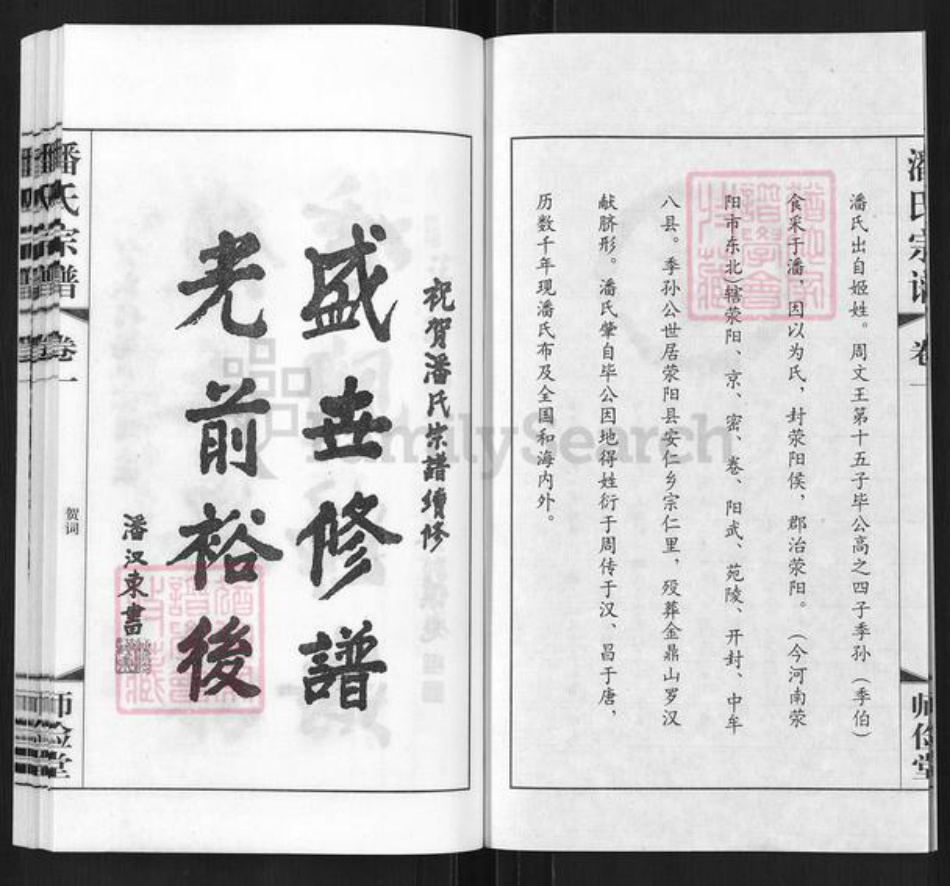 潘氏宗谱
卷一
师俭堂
潘氏出自姬姓。周文王第十五子毕公高之四子季孙（季伯）
食采于潘，因以为氏，封荥阳侯，郡治荥阳。（今河南荥
阳市东北）辖荥阳、京、密、卷、阳武、苑陵、开封、中牟
八县。季孙公世居荥阳县安仁乡宗仁里，殁葬金鼎山罗汉
献脐形。潘氏肇自毕公因地得姓衍于周传于汉、昌于唐，
历数千年现潘氏布及全国和海内外。
祝贺潘氏宗譜續修
盛世修譜
光前裕後
潘汉东書
潘氏宗谱
卷一
贺词
师俭堂
FamilySearch